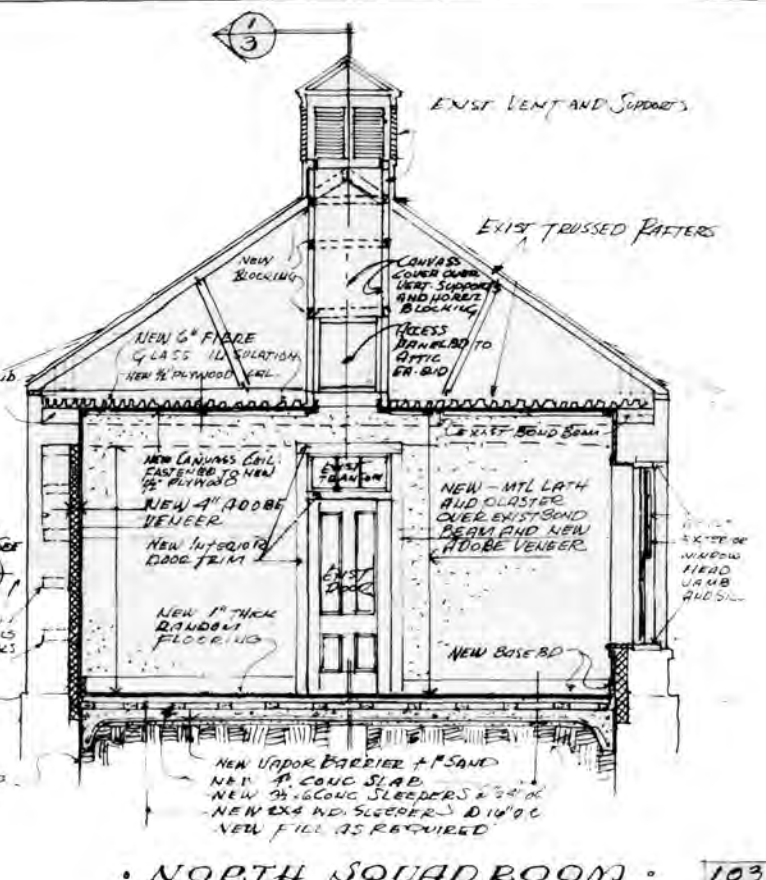 1
3
EXIST VENT AND SUPPORTS
EXIST TRUSSED RAFTERS
NEW
BLOCKING
CANVASS
COVER OVER
VERT. SUPPORTS
AND HORIZ
BLOCKING
ACCESS
PANEL BD TO
ATTIC
EA. END
NEW 6" FIBRE
GLASS INSULATION
NEW ½" PLYWOOD CEIL.
EXIST BOND BEAM
NEW CANVASS CEIL.
FASTENED TO NEW
½" PLYWOOD
EXIST
TRANSOM
NEW 4" ADOBE
VENEER
NEW - MTL LATH
AND PLASTER
OVER EXIST BOND
BEAM AND NEW
ADOBE VENEER
NEW INTERIOR
DOOR TRIM
EXIST
DOOR
EXTERIOR
WINDOW
HEAD
JAMB
AND SILL
NEW 1" THICK
RANDOM
FLOORING
NEW BASE BD
NEW VAPOR BARRIER + 1" SAND
NEW 4" CONC SLAB
NEW CONC SLEEPERS
NEW 2X4 WD. SLEEPERS @ 16" OC
NEW FILL AS REQUIRED
· NORTH SQUADROOM · 103